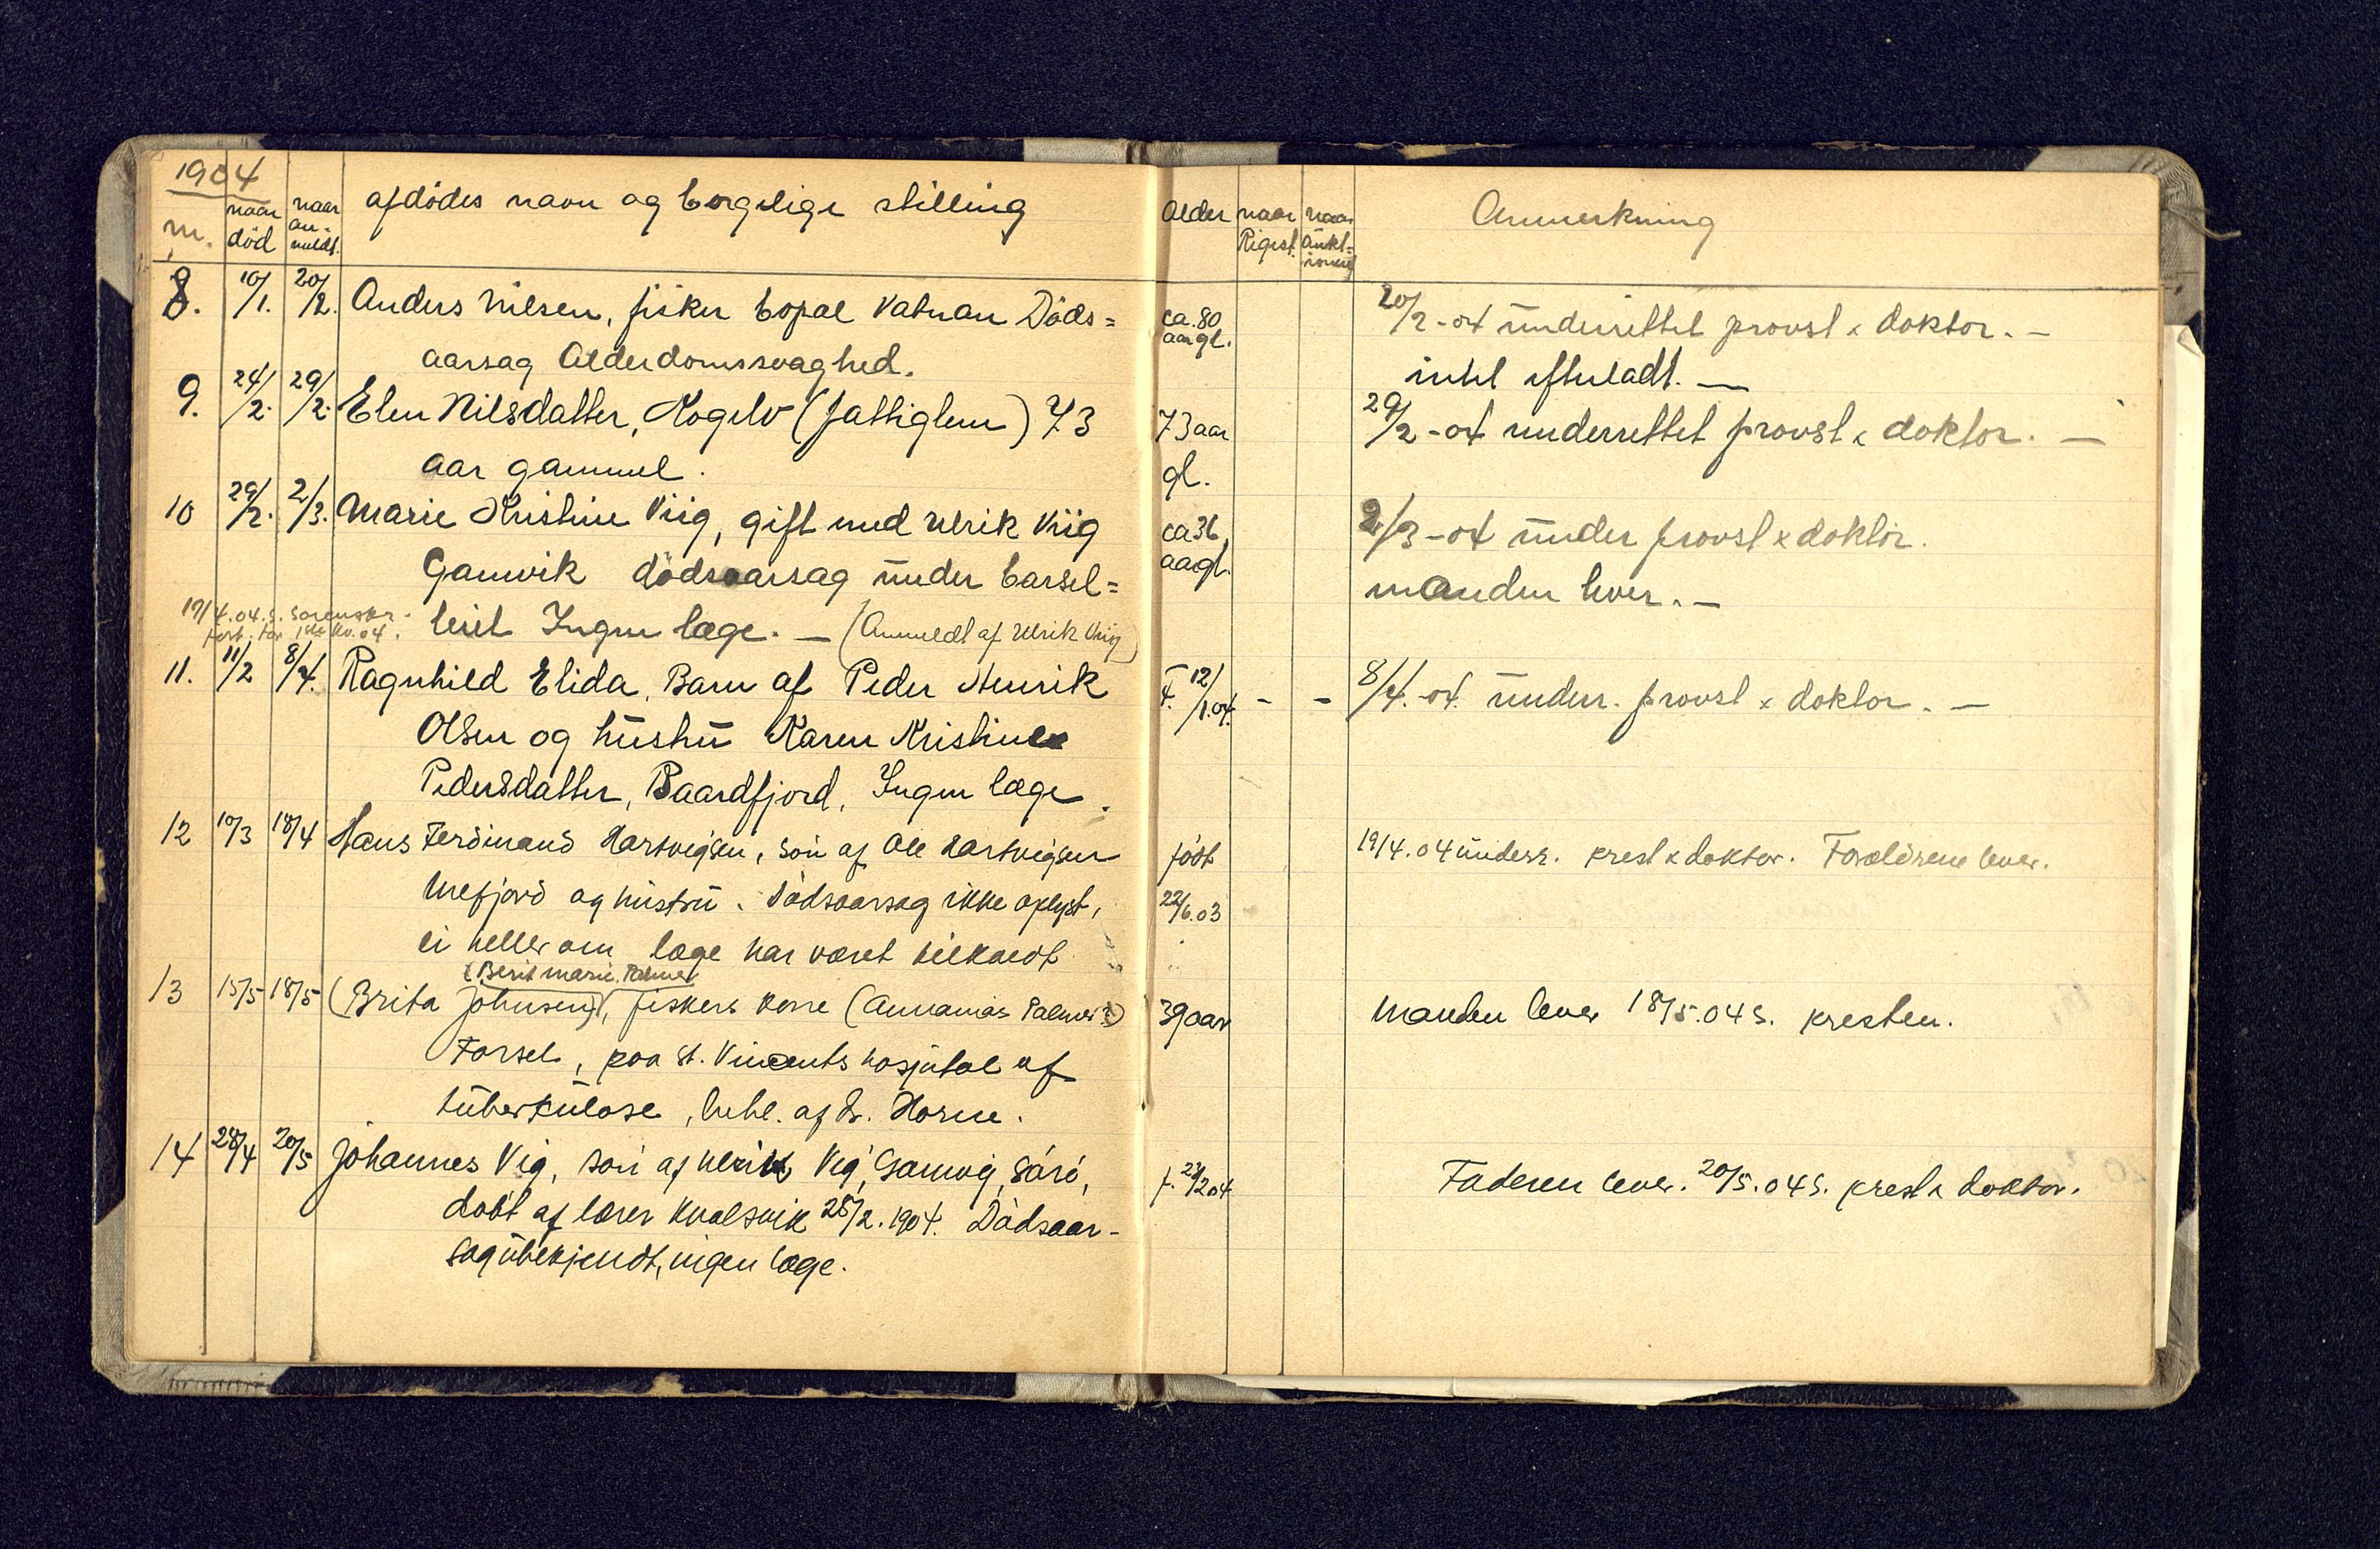 1904
nr. naar död naar an- meldt. afdödes navn og borgelige stilling Alder naar Regist. naar Auktion Anmerkning
8. 10/1. 20/2. Anders Nilsen, fisker bopæl Vatnan Döds= ca. 80 aar gl. 20/2-04 underrettet provst & doktor. –
aarsag Alderdomssvaghed. intet efterladt. –
9. 24/2. 29/2. Elen Nilsdatter, Kogelv (fattiglem) 73 73 aar 29/2-04 underrettet provst & doktor. –
aar gammel. gl.
10 29/2. 2/3. Marie Kristine Viig, gift med Ulrik Viig ca 36, aagl. 2/3-04 under provst & doktor.
Gamvik dödsaarsag under barsel= manden lever. –
19/4.04. s. Sorenskr.
fort. for 1ste kv. 04. leiet Ingen læge. – (Anmeldt af Ulrik Viig)
11. 11/2 8/4. Ragnhild Elida, Barn af Peder Henrik F. 12/1.04. - - 8/4.-04. underr. provst & doktor. –
Olsen og hustru Karen Kristine
Pedersdatter, Baardfjord, Ingen læge.
12 10/3 18/4 Hans Ferdinand Hartvigsen, sön af Ole Hartvigsen födt 19/4.04 underr. prest & doktor. Forældrene lever.
Urefjord og hustru. Dödsaarsag ikke oplyst, 22/6.03
ei heller om læge har været tilkaldt
(Berit Marie Palmer
13 15/5 18/5 (Brita Johnsen), fiskers kone (Annanias Palmer?) 39 aar Manden lever 18/5.04 s. presten.
Forsøl, paa St. Vincents hospital af
tuberkulose, behl. af Dr. Horne.
14 28/4 20/5 Johannes Vig, sön af Ulrik Vig, Gamvig, Sörö, f. 23/2 04 Faderen lever. 20/5.04 s. prest & doktor.
döbt af lærer Kvalsvik 28/2.1904. Dödsaar-
sag ubekjendt, ingen læge.